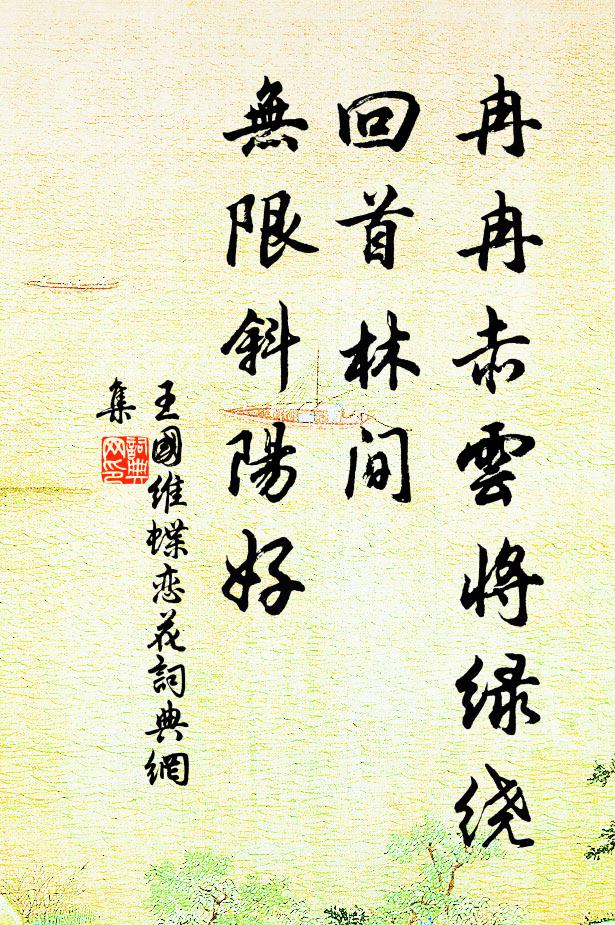 冉冉赤雲将绿绕
回首林間
無限斜陽好
王國維蝶恋花詞典網
集
詞典
网印